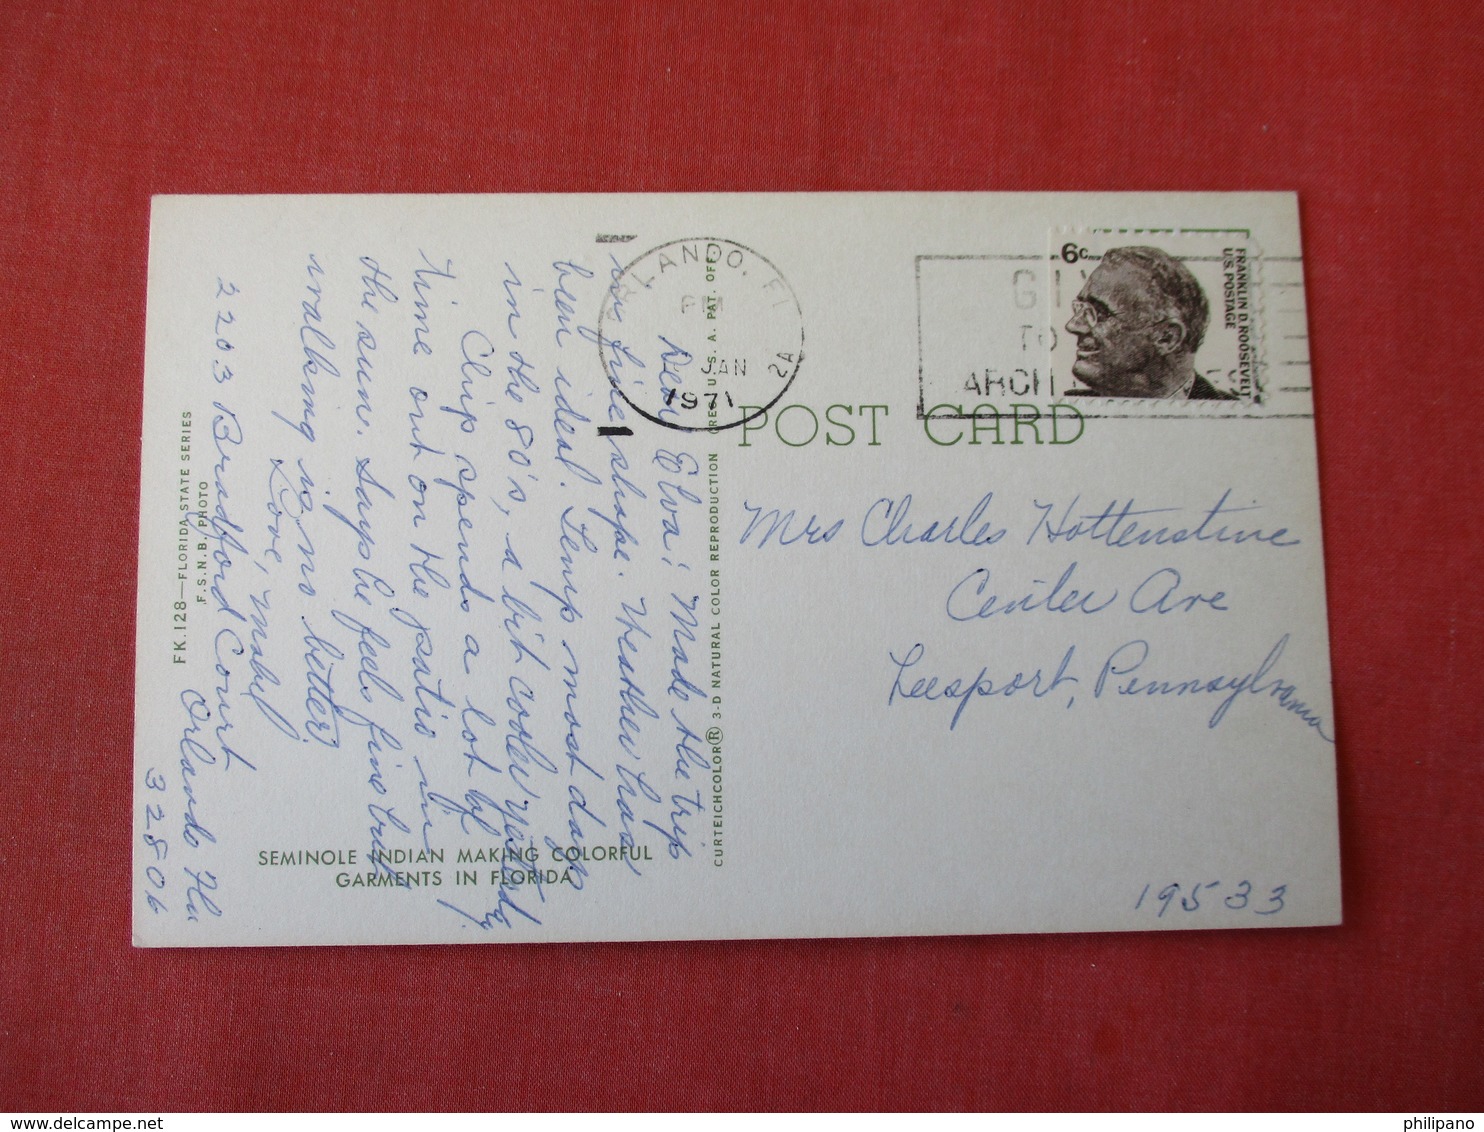 Dear Elva; Made the trip
in fine shape. Weather has
been ideal. Temp most days
in the 80's, a bit cooler yesterday.
Chip spends a lot of
time out on the patio in
the sun. Says he feels fine but
walking is no better.
Love, Mabel
2203 Bradford Court
Orlando Fla
32806
FK.128—FLORIDA STATE SERIES
F.S.N.B. PHOTO
SEMINOLE INDIAN MAKING COLORFUL
GARMENTS IN FLORIDA
CURTEICHCOLOR® 3-D NATURAL COLOR REPRODUCTION U.S. A. PAT. OFF.
ORLANDO, FL
PM
JAN
1971
2A
TO
6c
FRANKLIN D. ROOSEVELT
U.S. POSTAGE
POST CARD
Mrs Charles Hottenstine
Center Ave
Leesport, Pennsylvania
19533
philipano